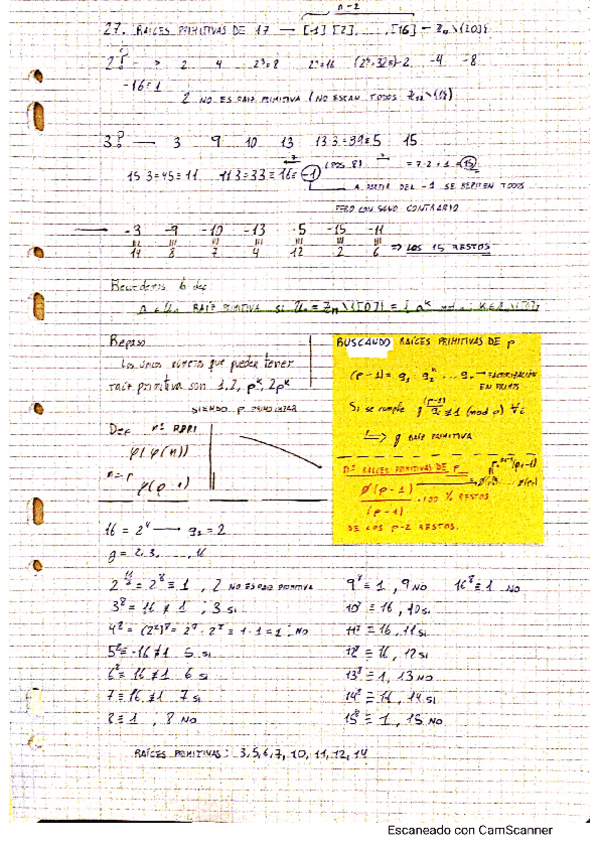 n-2
27. RAÍCES PRIMITIVAS DE 17 → [-1] [2], ..., [16] - Zn\{[0]}
2^6 → 2 4 2³=8 2⁴=16 (2⁵=32≡)-2 -4 -8
-16≡1
2 NO ES RAÍZ PRIMITIVA (NO ESTÁN TODOS Z17\{[0]})
3 → 3 9 10 13 13·3=39≡5 15
15·3=45≡11 11·3=33≡16≡-1 (POS 8) =7·2+1=15
A PARTIR DEL -1 SE REPITEN TODOS
PERO CON SIGNO CONTRARIO
→ -3 -9 -10 -13 -5 -15 -11
14 8 7 4 12 2 6 => LOS 15 RESTOS
RAÍZ PRIMITIVA SI Un = Zn\{[0]} =
Repaso
Los únicos números que pueden tener
raíz primitiva son 1, 2, p^k, 2p^k
SIENDO p PRIMO IMPAR
Def nº RRPP
φ(φ(n))
n=p
φ(p-1)
BUSCANDO RAÍCES PRIMITIVAS DE p
(p-1) = q1 q2 ... qn → FACTORIZACIÓN
EN PRIMOS
Si se cumple g^((p-1)/qi) ≢ 1 (mod p) ∀i
↳ g RAÍZ PRIMITIVA
Nº RAÍCES PRIMITIVAS DE p
φ(p-1)
/(p-1) · 100 % RESTOS
DE LOS p-2 RESTOS.
16 = 2⁴ → q1 = 2
g = 2, 3, ..., 16
2^(16/2) = 2⁸ ≡ 1, 2 NO ES RAÍZ PRIMITIVA 9⁸ ≡ 1, 9 NO 16⁸ ≡ 1 NO
3⁸ = 16 ≢ 1, 3 SI 10⁸ ≡ 16, 10 SI
4⁸ = (2²)⁸ = 2⁸ · 2⁸ = 1·1 = 1, NO 11⁸ ≡ 16, 11 SI
5⁸ ≡ -16 ≢ 1 5 SI 12⁸ ≡ 16, 12 SI
6⁸ ≡ 16 ≢ 1 6 SI 13⁸ ≡ 1, 13 NO
7 ≡ 16 ≢ 1 7 SI 14⁸ ≡ 16, 14 SI
8 ≡ 1, 8 NO 15⁸ ≡ 1, 15 NO
RAÍCES PRIMITIVAS: 3, 5, 6, 7, 10, 11, 12, 14
Escaneado con CamScanner